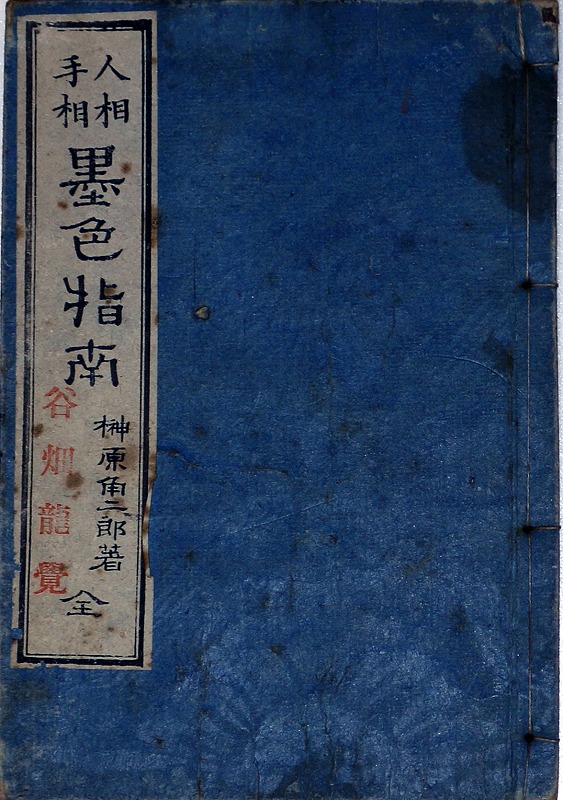 人相
手相
墨色指南
榊原角二郎著
全
谷畑龍覺